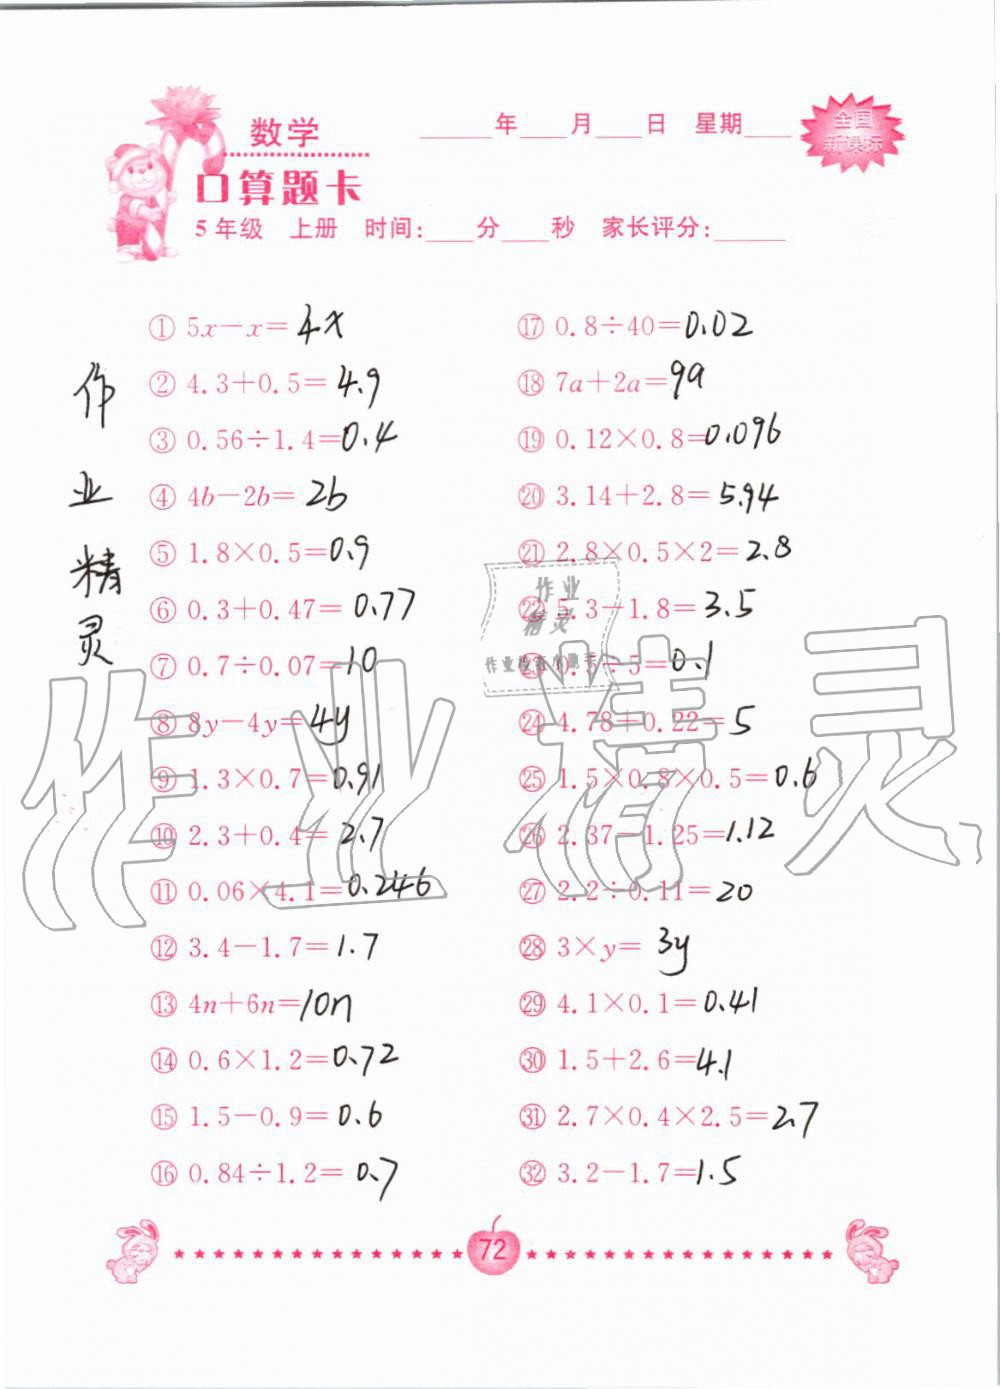 数学
____年____月____日 星期____
全国
新课标
口算题卡
5年级 上册 时间:____分____秒 家长评分:____
① 5x－x＝4x
② 4.3＋0.5＝4.9
③ 0.56÷1.4＝0.4
④ 4b－2b＝2b
⑤ 1.8×0.5＝0.9
⑥ 0.3＋0.47＝0.77
⑦ 0.7÷0.07＝10
⑧ 8y－4y＝4y
⑨ 1.3×0.7＝0.91
⑩ 2.3＋0.4＝2.7
⑪ 0.06×4.1＝0.246
⑫ 3.4－1.7＝1.7
⑬ 4n＋6n＝10n
⑭ 0.6×1.2＝0.72
⑮ 1.5－0.9＝0.6
⑯ 0.84÷1.2＝0.7
⑰ 0.8÷40＝0.02
⑱ 7a＋2a＝9a
⑲ 0.12×0.8＝0.096
⑳ 3.14＋2.8＝5.94
㉑ 2.8×0.5×2＝2.8
㉒ 5.3－1.8＝3.5
㉓ 0.5÷5＝0.1
㉔ 4.78＋0.22＝5
㉕ 1.5×0.8×0.5＝0.6
㉖ 2.37－1.25＝1.12
㉗ 2.2÷0.11＝20
㉘ 3×y＝3y
㉙ 4.1×0.1＝0.41
㉚ 1.5＋2.6＝4.1
㉛ 2.7×0.4×2.5＝2.7
㉜ 3.2－1.7＝1.5
作业精灵
作业
精灵
作业精灵
72